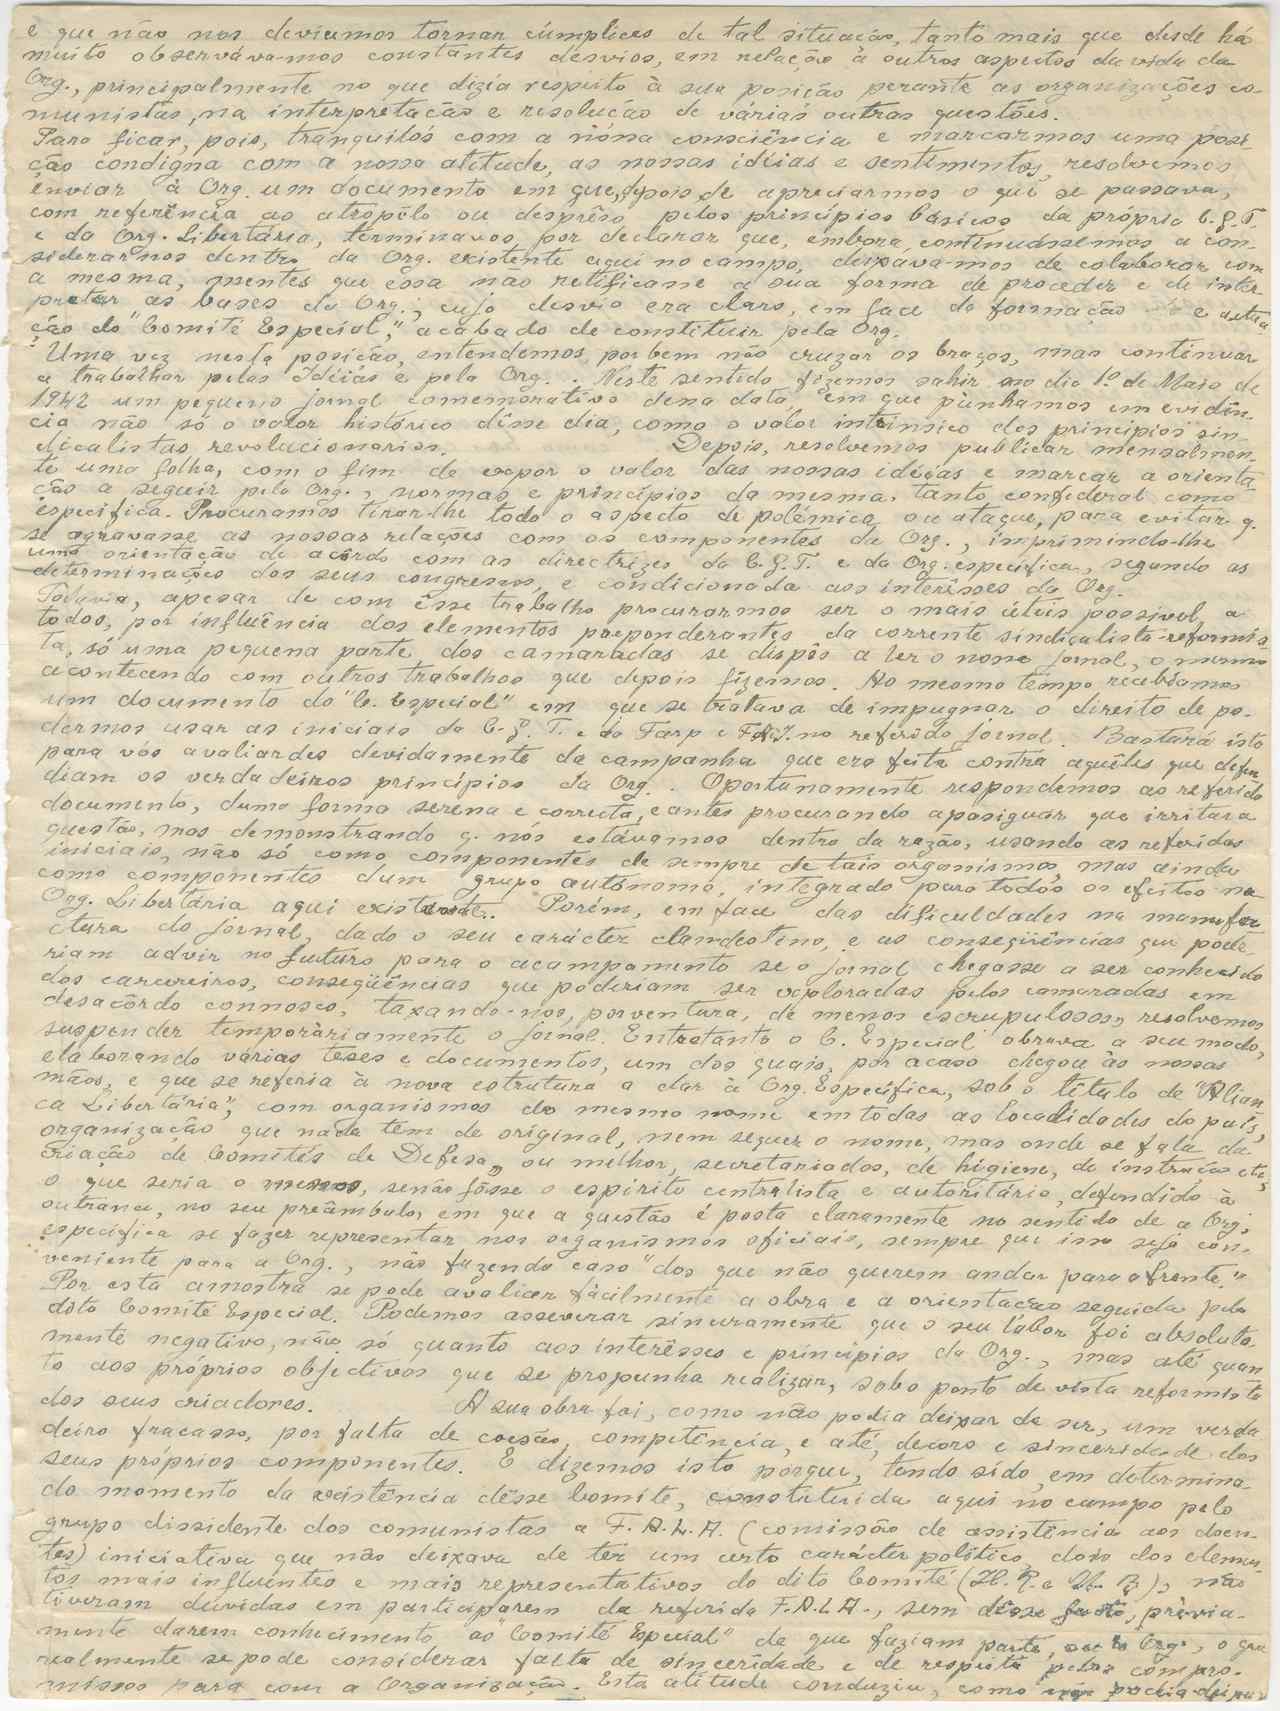 e que não nos deviamos tornar cúmplices de tal situação, tanto mais que desde há
muito observáva-mos constantes desvios, em relação à outros aspectos da vida da
Org., principalmente no que dizia respeito à sua posição perante as organizações co-
munistas, na interpretação e resolução de várias outras questões.
Para ficar, pois, tránquilos com a nossa consciência e marcarmos uma posi-
ção condigna com a nossa atitude, as nossas idéias e sentimentos, resolvemos
enviar à Org. um documento em que, depois de apreciarmos o que se passava,
com referência ao atropêlo ou desprêso pelos princípios básicos da própria C.G.T.
e da Org. Libertária, terminavos por declarar que, embora continuássemos a con-
siderarmos dentro da Org. existente aqui no campo, deixava-mos de colaborar com
a mesma, mentes que essa não retificasse a sua forma de proceder e de inter-
pretar as bases da Org.; cujo desvio era claro, em face da formação e actua-
ção do "Comité Especial", acabado de constituir pela Org.
Uma vez nesta posição, entendemos por bem não cruzar os braços, mas continuar
a trabalhar pelas Idéias e pela Org. . Neste sentido fizemos sahir no dia 1º de Maio de
1942 um pequeno jornal comemorativo dessa data, em que púnhamos em evidên-
cia não só o valor histórico dêsse dia, como o valor intrínsico dos princípios sin-
dicalistas revolucionarios. Depois, resolvemos publicar mensalmen-
te uma folha, com o fim de expor o valor das nossas idéias e marcar a orienta-
ção a seguir pela Org., normas e princípios da mesma, tanto confederal como
especifica. Procuramos tirar-lhe todo o aspecto de polémica ou ataque, para evitar q.
se agravasse as nossas relações com os componentes da Org., imprimindo-lhe
uma orientação de acôrdo com as directrizes da C.G.T. e da Org. especifica, segundo as
determinações dos seus congressos, e condicionada aos interêsses da Org.
Todavia, apesar de com êsse trabalho procurarmos ser o mais úteis possivel, a
todos, por influência dos elementos preponderantes da corrente sindicalista-reformis-
ta, só uma pequena parte dos camaradas se dispôs a ler o nosso jornal, o mesmo
acontecendo com outros trabalhos que depois fizemos. Ao mesmo tempo recebiamos
um documento do "C. Especial" em que se tratava de impugnar o direito de po-
dermos usar as iniciais da C.G.T. e da Farp e F.A.I. no referido jornal. Bastará isto
para vós avaliardes devidamente da campanha que era feita contra aquêles que defen-
diam os verdadeiros princípios da Org. . Oportunamente respondemos ao referido
documento, duma forma serena e correcta, e antes procurando apasiguar que irritar a
questão, mas demonstrando q. nós estávamos dentro da razão, usando as referidas
iniciais, não só como componentes de sempre de tais organismos, mas ainda
como componentes dum grupo autónomo, integrado para todos os efeitos na
Org. Libertária aqui existente. Porém, em face das dificuldades na manufac-
ctura do jornal, dado o seu carácter clandestino, e as conseqüências que pode-
riam advir no futuro para o acampamento se o jornal chegasse a ser conhecido
dos carcereiros, conseqüências que poderiam ser exploradas pelos camaradas em
desacôrdo connosco, taxando-nos, porventura, de menos escrupulosos, resolvemos
suspender temporàriamente o jornal. Entretanto o C. Especial obrava a seu modo,
elaborando várias teses e documentos, um dos quais, por acaso chegou às nossas
mãos, e que se referia à nova estrutura a dar à Org. Especifica, sob o titulo de "Alian-
ca Libertária", com organismos do mesmo nome em todas as localidades do país,
organização que nada têm de original, nem sequer o nome, mas onde se fala da
criação de Comités de Defesa, ou melhor, secretariados, de higiene, de instrução etc,
o que seria o menos, senão fôsse o espirito centralista e autoritário, defendido à
outrance, no seu preâmbulo, em que a questão é posta claramente no sentido de a Org.
especifica se fazer representar nos organismos oficiais, sempre que isso seja con-
veniente para a Org., não fazendo caso "dos que não querem andar para a frente".
Por esta amostra se pode avaliar fàcilmente a obra e a orientação seguida pelo
dito Comité Especial. Podemos asseverar sinceramente que o seu labor foi absoluta-
mente negativo, não só quanto aos interêsses e princípios da Org., mas até quan-
to aos próprios objectivos que se propunha realizar, sob o ponto de vista reformista
dos seus criadores. A sua obra foi, como não podia deixar de ser, um verda-
deiro fracasso, por falta de coesão, competência, e até, decoro e sinceridade dos
seus próprios componentes. E dizemos isto porque, tendo sido, em determina-
do momento da existência dêsse Comité, constituida aqui no campo pelo
grupo dissidente dos comunistas a F.A.L.A. (comissão de assistência aos doen-
tes) iniciativa que não deixava de ter um certo carácter politico, dois dos elemen-
tos mais influentes e mais representativos do dito Comité (H.R. e H.B.), não
tiveram dúvidas em participarem da referida F.A.L.A., sem dêsse facto, prèvia-
mente darem conhecimento ao Comité Especial" de que faziam parte, ou à Org., o que
realmente se pode considerar falta de sinceridade e de respeito pelos compro-
missos para com a Organização. Esta atitude conduziu, como não podia deixar